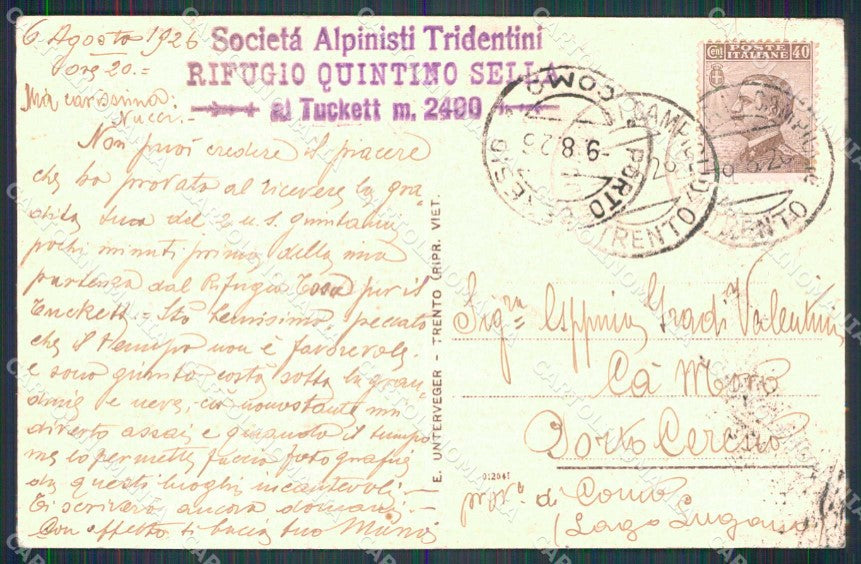 6 Agosto 1926
ore 20.=
Mia carissima
Nucci.-
Societá Alpinisti Tridentini
RIFUGIO QUINTINO SELLA
al Tuckett m. 2400
Non puoi credere il piacere
che ho provato al ricevere la gra-
dita tua del 2 u.s. giuntami
pochi minuti prima della mia
partenza dal Rifugio Tosa per il
Tuckett.- Sto benissimo, peccato
che il tempo non è favorevole.
e sono giunto costà sotto la gran-
dine e neve, ciò nonostante mi
diverto assai e quando il tempo
me lo permette faccio fotografie
di questi luoghi incantevoli.-
Ti scriverò ancora domani.-
Con affetto ti bacia tuo
Cent POSTE ITALIANE 40
PORTO CERESIO COMO
-9.8.26
CAMPIGLIO
TRENTO
26
TRENTO
E. UNTERVEGER - TRENTO (RIPR. VIET.
Sig.na Valentini
Cà
Porto Ceresio
prov.a di Como
(Lago Lugano)
CARTOLINOMANIA